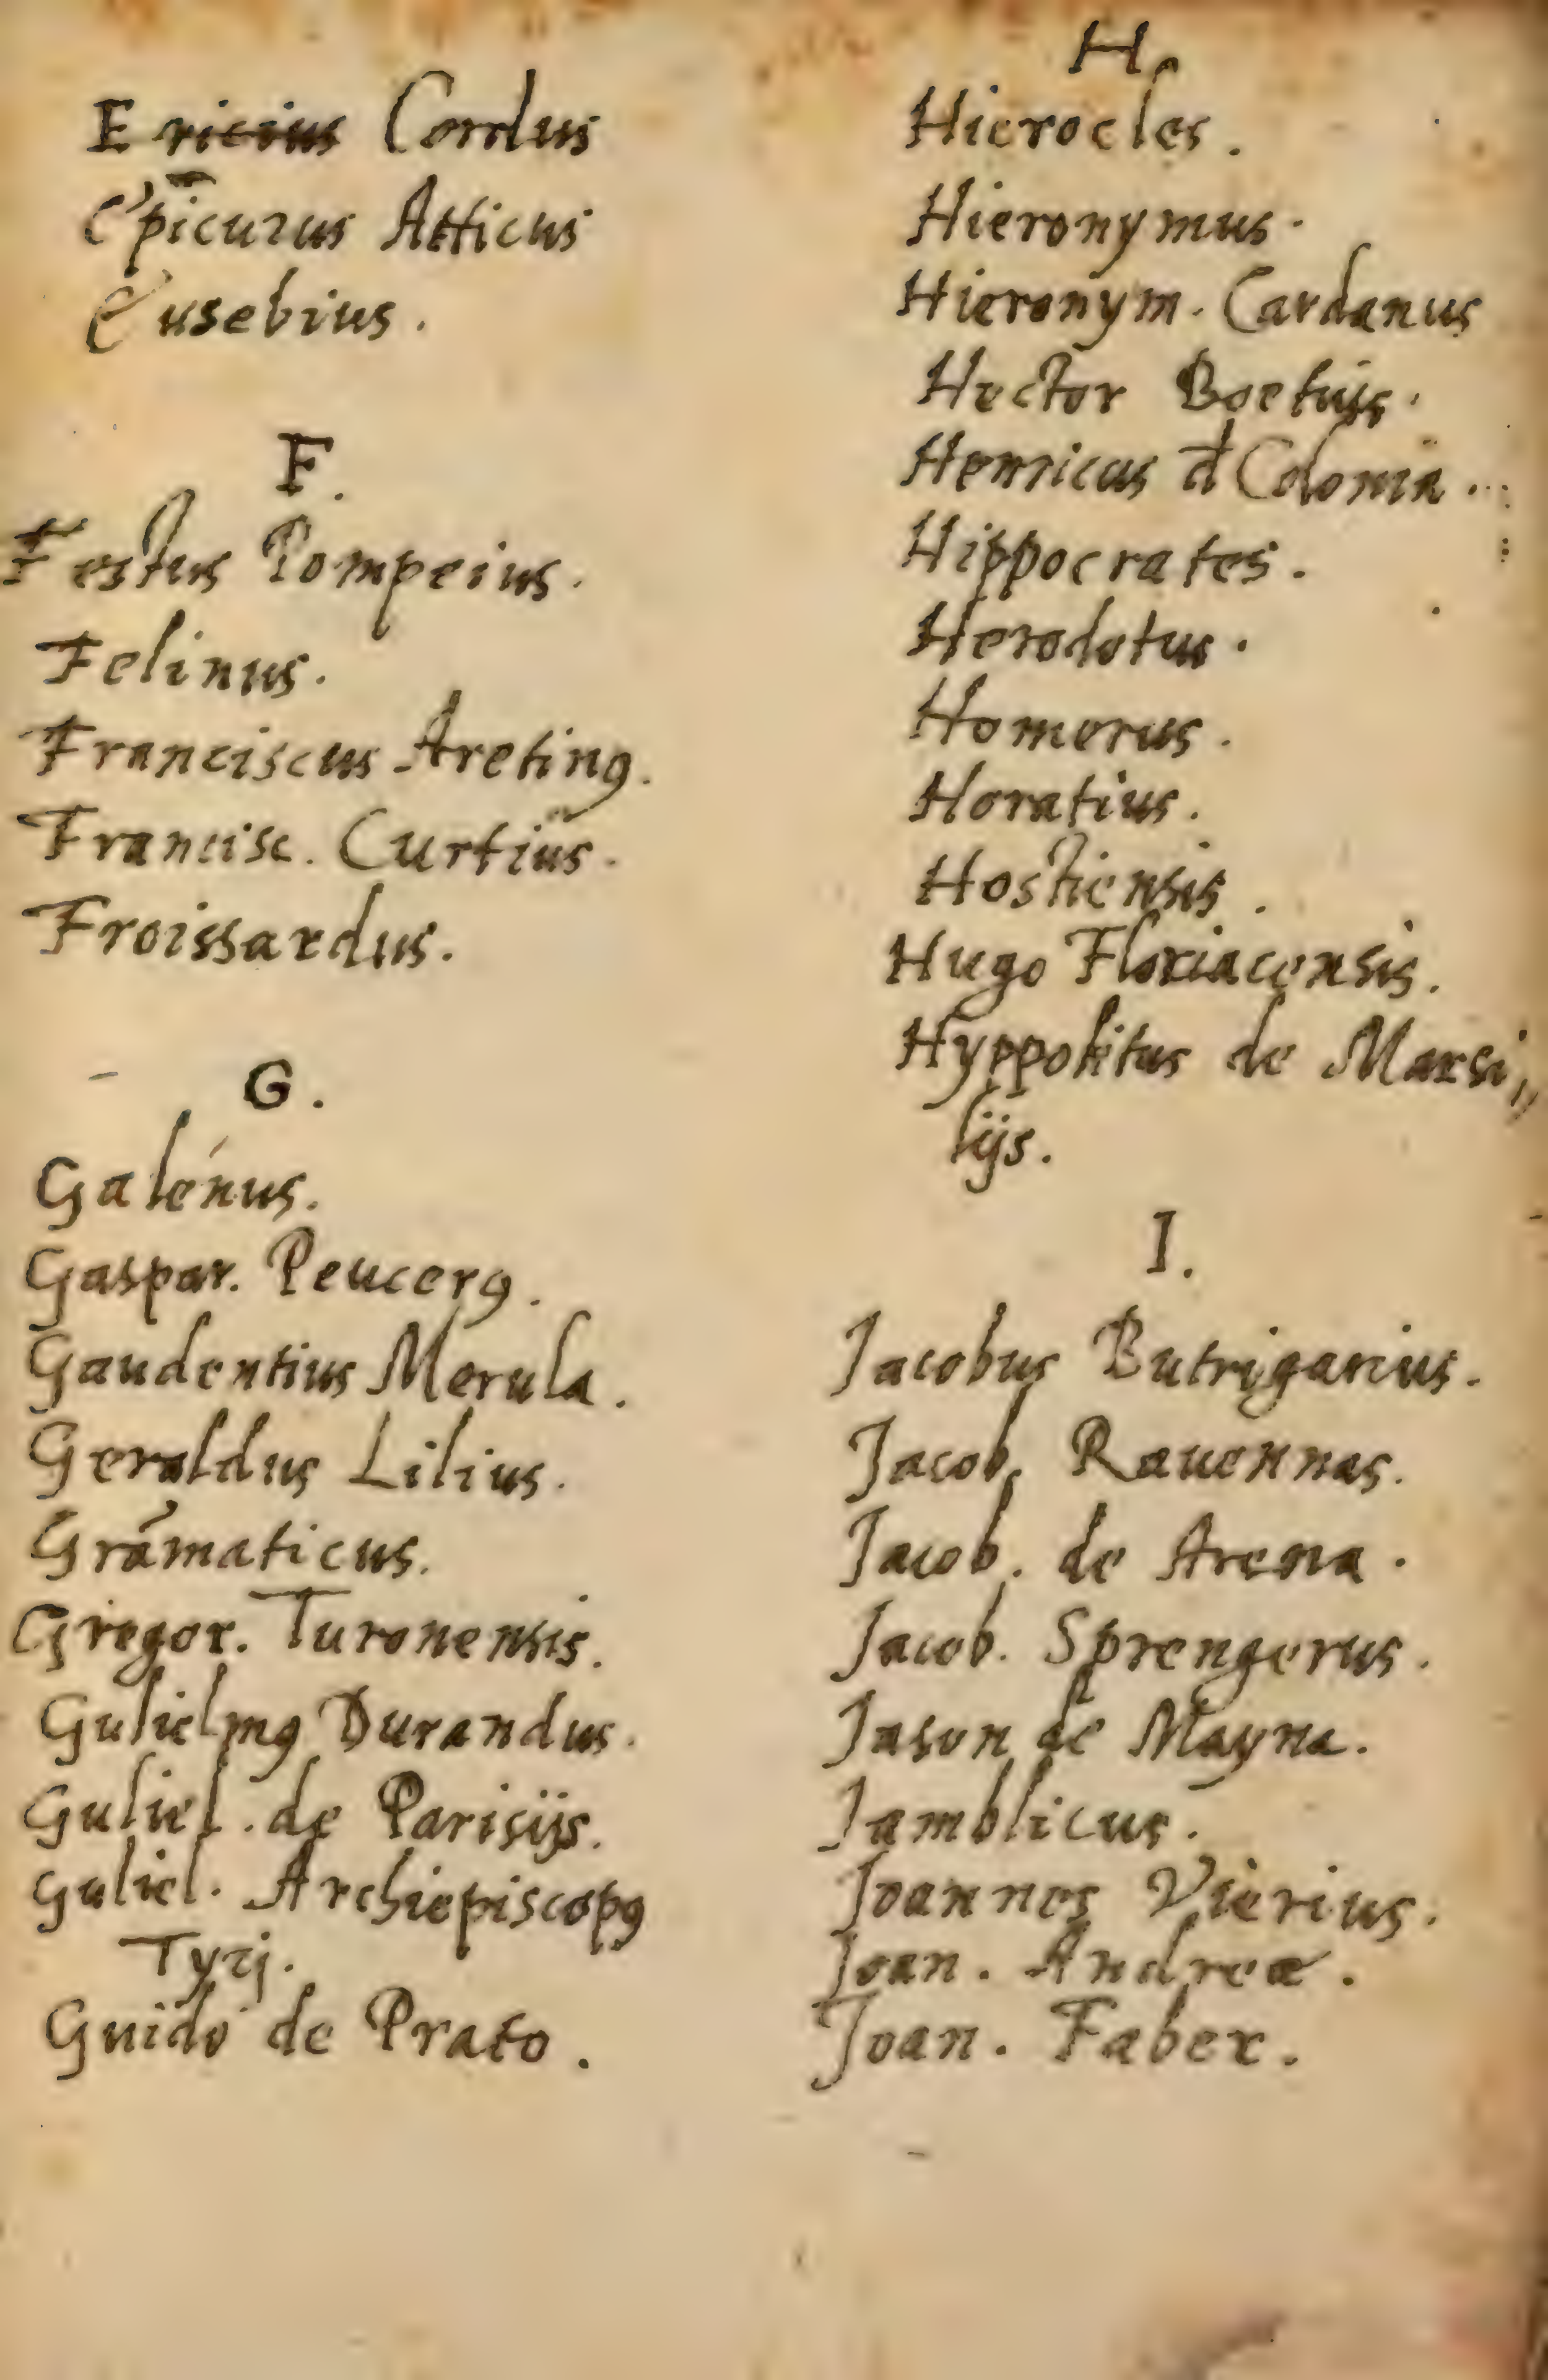 Ericius Cordus
Epicurus Atticus
Eusebius.
F.
Festus Pompeius.
Felinus.
Franciscus Aretinꝰ.
Francisc. Curtius.
Froissardus.
G.
Galénus.
Gaspar. Peucerꝰ.
Gaudentius Merula.
Geraldus Lilius.
Grãmaticus.
Gregor. Turonensis.
Gulielmꝰ Durandus.
Guliel. de Parisijs.
Guliel. Archiepiscopꝰ
Tyrj.
Guido de Prato.
H.
Hierocles.
Hieronymus.
Hieronym. Cardanus
Hector Boetius.
Henricus đ Colonia.
Hippocrates.
Herodotus.
Homerus.
Horatius.
Hostiensis.
Hugo Floriacensis.
Hyppolitus de Marsi〃
lijs.
I.
Jacobus Butrigarius.
Jacob. Rauennas.
Jacob. de Arena.
Jacob. Sprengerus.
Jason de Mayna.
Jamblicus.
Joannes Vierius.
Joan. Andreæ.
Joan. Faber.